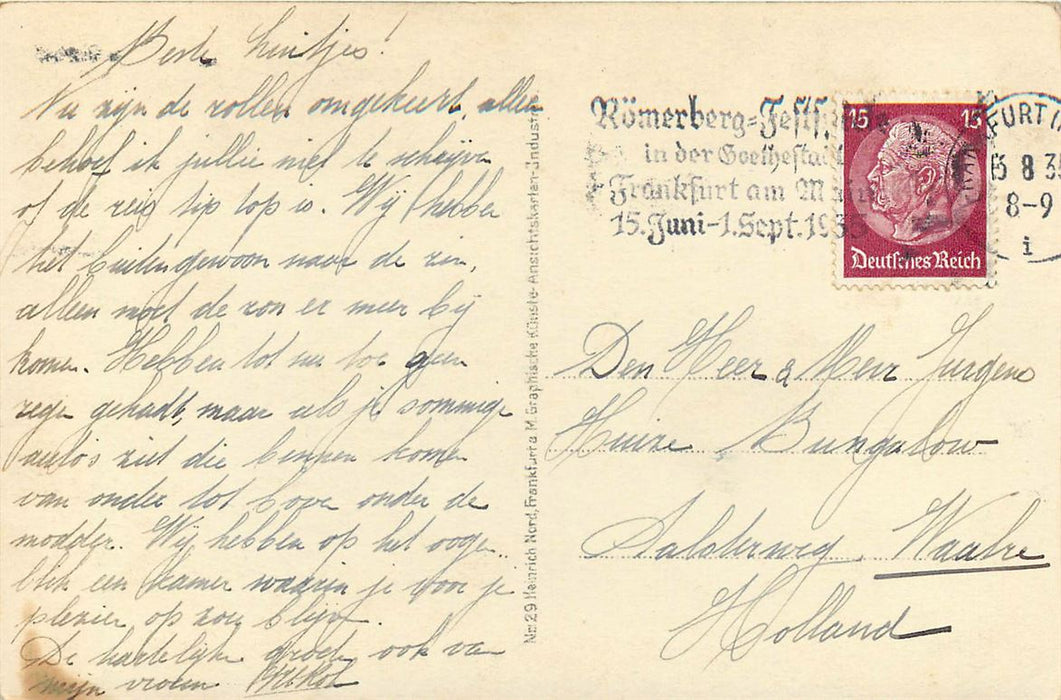 Beste luitjes!
Nu zijn de rollen omgekeerd, alleen
behoef ik jullie niet te schrijven
of de reis tip top is. Wij hebben
het buitengewoon naar de zin,
alleen moet de zon er meer bij
komen. Hebben tot nu toe geen
regen gehadt, maar als je sommige
autos ziet die binnen komen
van onder tot boven onder de
modder. Wij hebben op het oogen
blik een kamer waarin je voor je
plezier op zou blijven.
De hartelijke groeten ook van
mijn vrouw
No 29 Heinrich Nord, Frankfurt a M. Graphische Künste-Ansichtskarten-Industrie
Römerberg=Festsp
in der Goethestadt
Frankfurt am Main
15. Juni-1. Sept. 193
15 15
Deutsches Reich
FURT
8 3
8-9
i
Den Heer & Mevr Jurgens
Huize Bungalow
Waalre
Holland